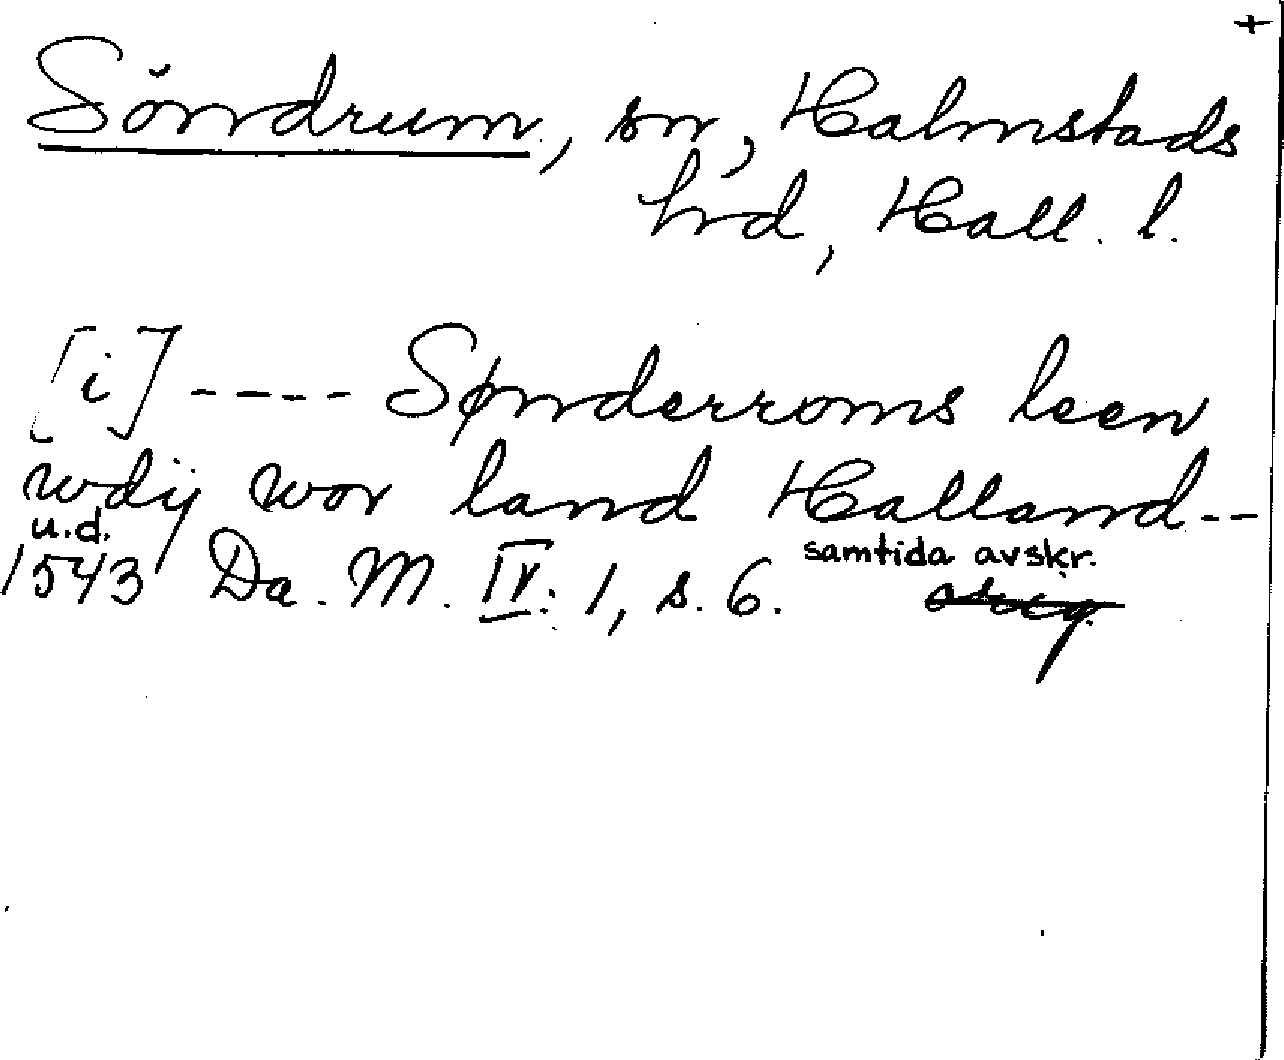 +
Söndrum, sn, Halmstads
hrd, Hall. l.
[i] ---- Sønderroms leen
wdij wor land Halland--
u.d.
samtida avskr.
1543 Da. M. IV: 1, s. 6. orig.